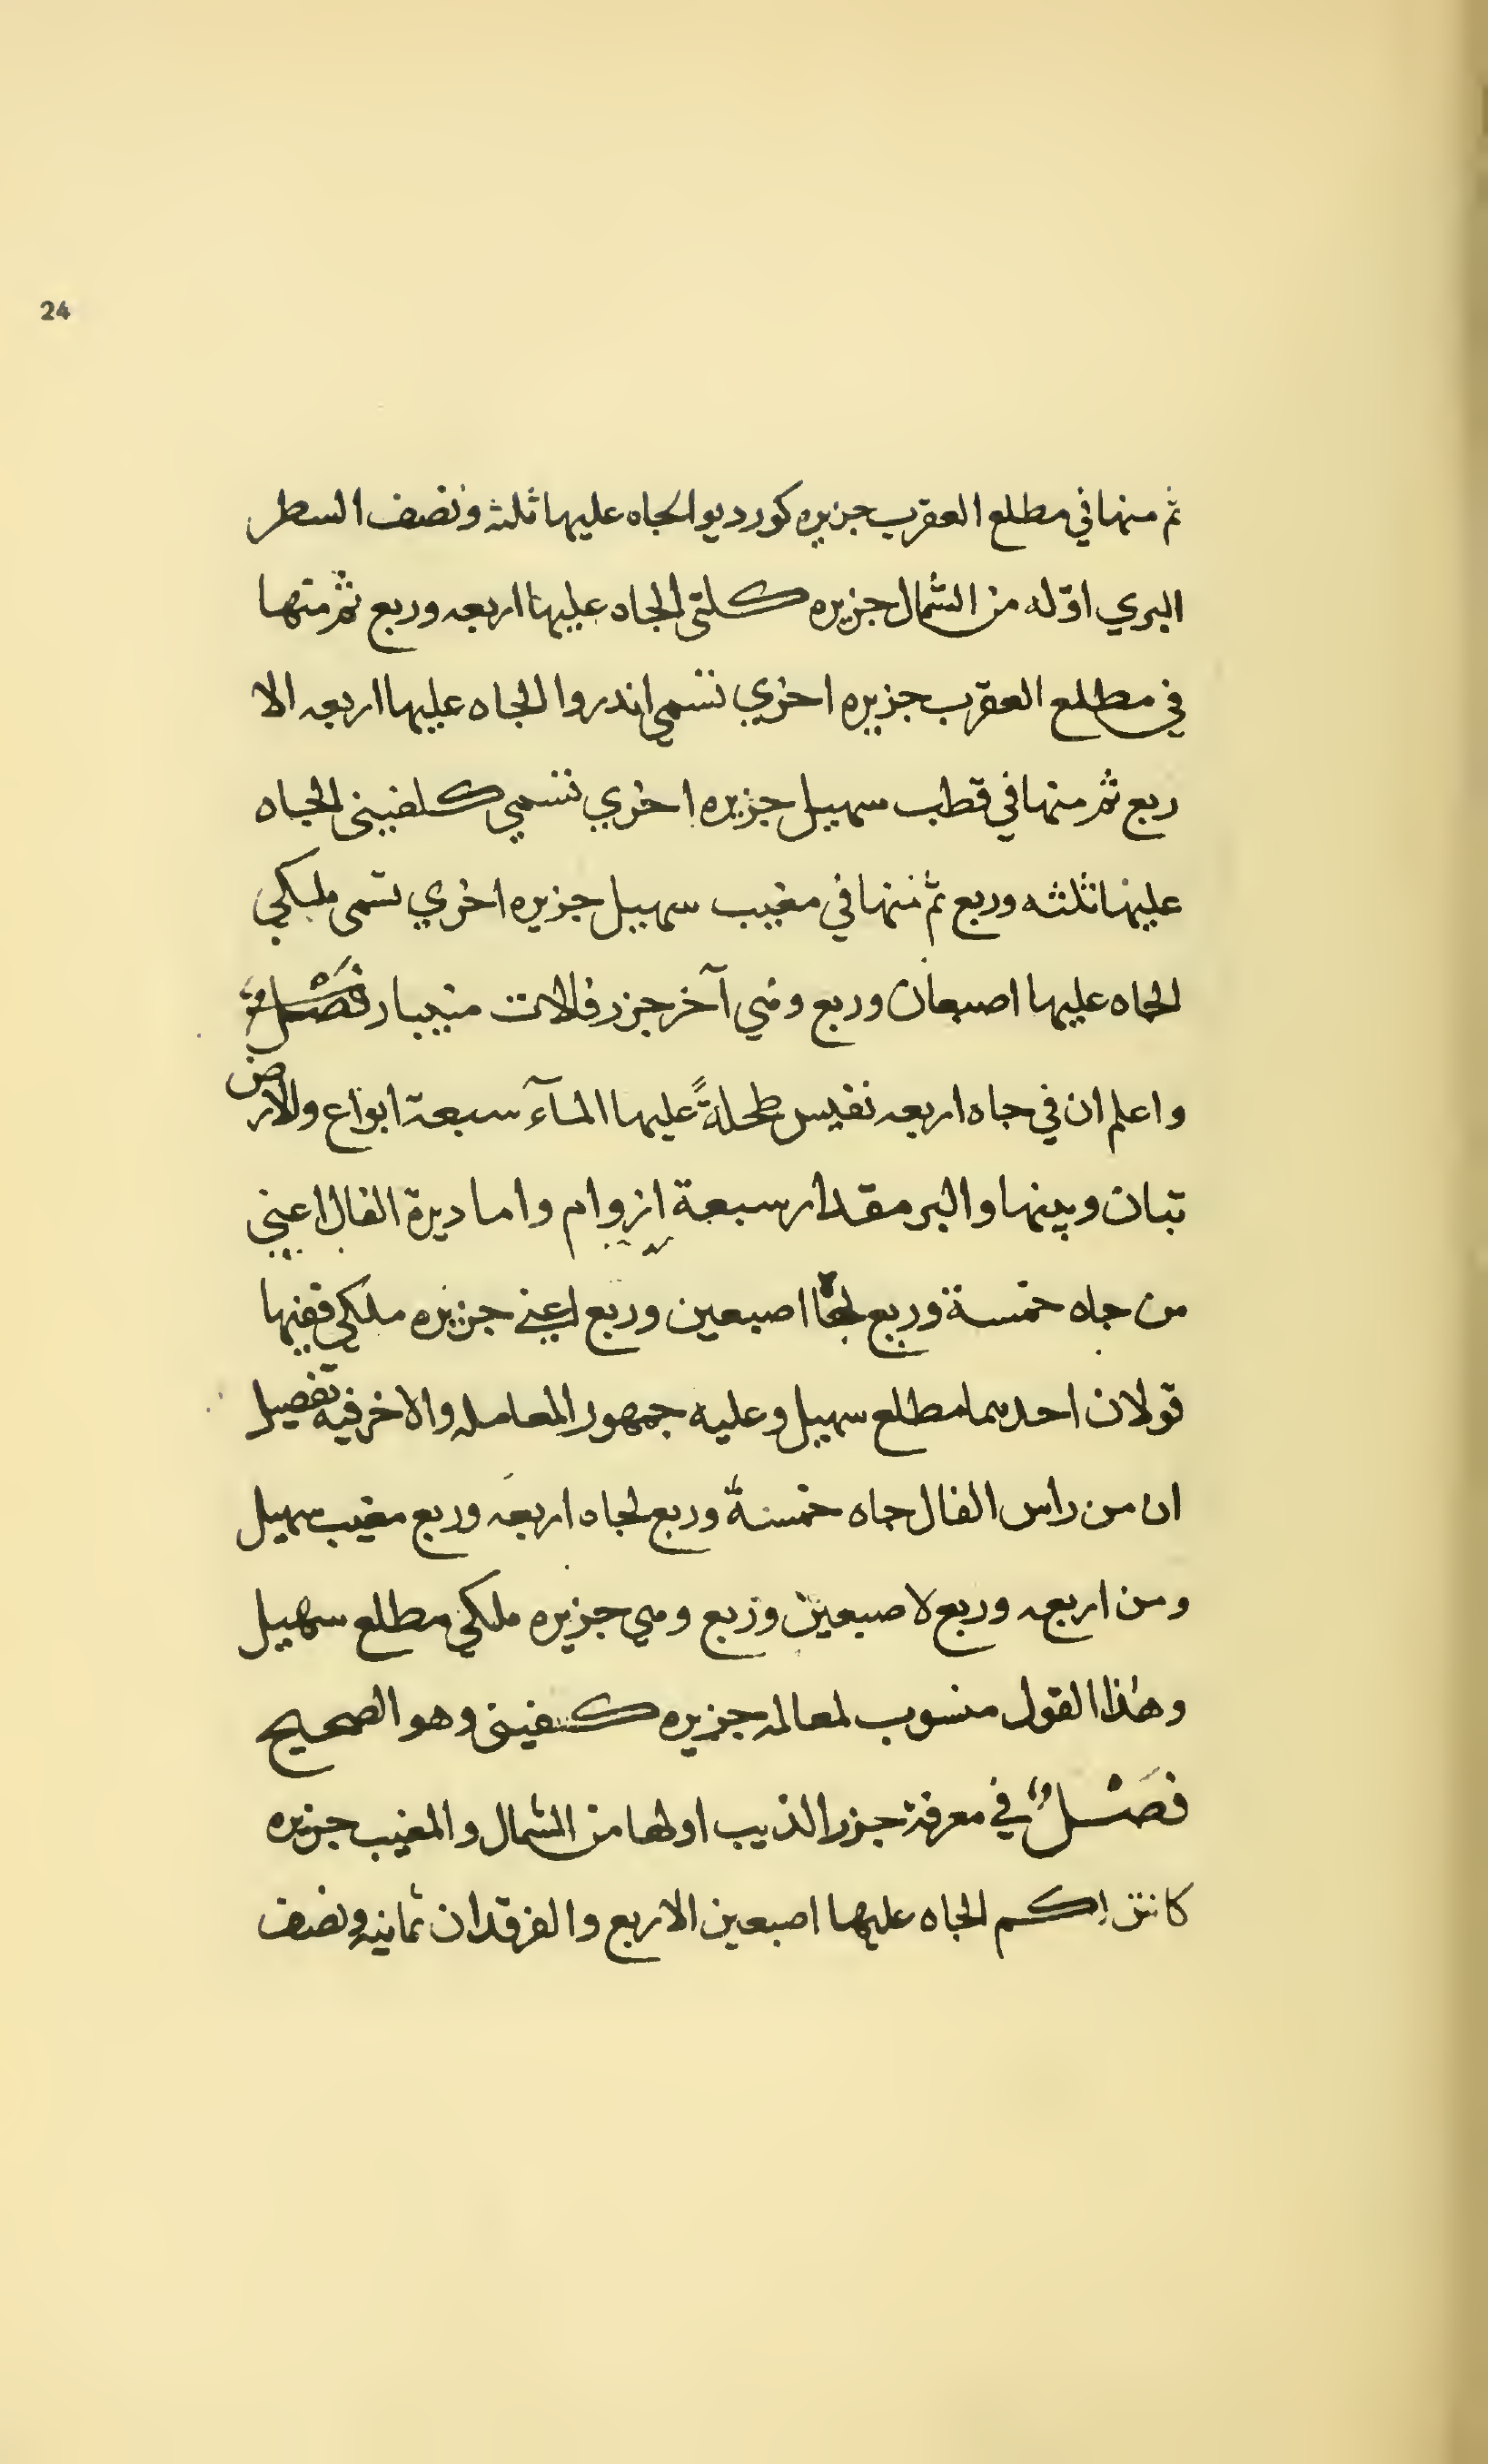 24
ثم منها في مطلع العقرب جزيره كورديو الجاه عليها ثلثه ونصف السطر
البري اوّله من الشمال جزيره كلتي الجاه عليها اربعه وربع ثم منها
في مطلع العقرب جزيره اخري تسمي اندروا الجاه عليها اربعه الا
ربع ثم منها في قطب سهيل جزيره اخري تسمي كلفيني الجاه
عليها ثلثه وربع ثم منها في مغيب سهيل جزيره اخري تسمى ملكي
الجاه عليها اصبعان وربع وهي آخر جزر فالات منيبار فَصْلٌ
واعلم ان في جاه اربعه نفيس طحلةً عليها المآء سبعة ابواع والارض
تبان وبينها والبر مقدار سبعة ازوام واما ديرة الفال اعني
من جاه خمسة وربع اصبعين وربع اعني جزيره ملكي ففيها
قولان احدهما مطلع سهيل وعليه جمهور المعامله والاخر فيه تفصيل
ان من راس الفال جاه خمسة وربع لجاه اربعه وربع مغيب سهيل
ومن اربعه وربع لاصبعين وربع وهي جزيره ملكي مطلع سهيل
وهٰذا القول منسوب لمعالمه جزيره كفيني وهو الصحيح
فَصْلٌ في معرفة جزر الذيب اولها من الشمال والمغيب جزيره
الجاه عليها اصبعين الا ربع والفرقدان ثمانيه ونصف